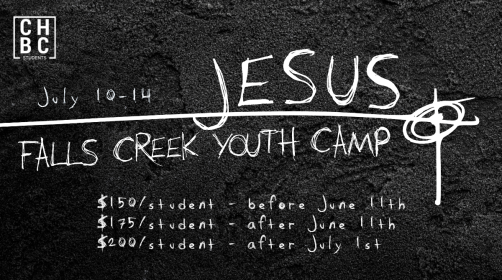 CH
BC
STUDENTS
JESUS
July 10-14
FALLS CREEK YOUTH CAMP
$150/student - before June 11th
$175/student - after June 11th
$200/student - after July 1st